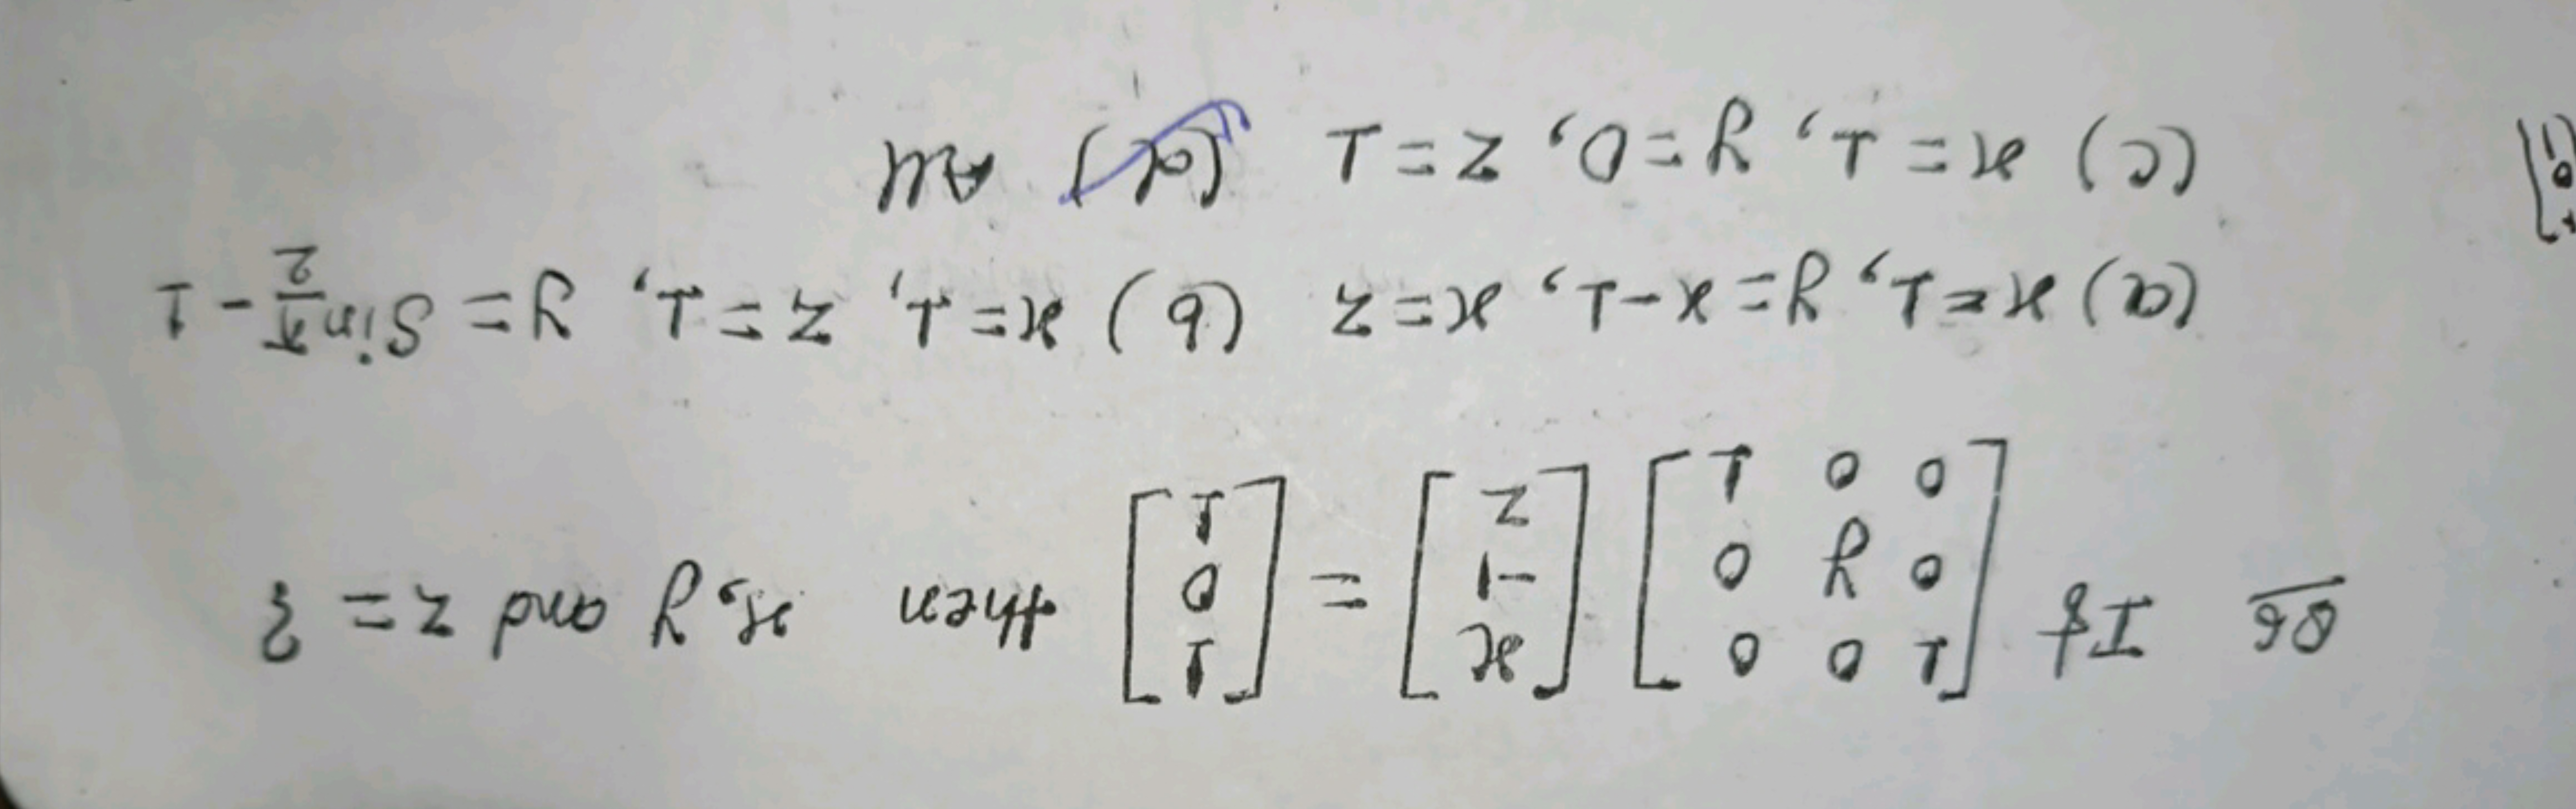 Q6 If [1 0 0 / 0 y 0 / 0 0 1] [x / -1 / z] = [1 / 0 / 1] then x, y and z = ?
(a) x=1, y=x-1, x=z (b) x=1, z=1, y=Sin π/2 - 1
(c) x=1, y=0, z=1 (d) All